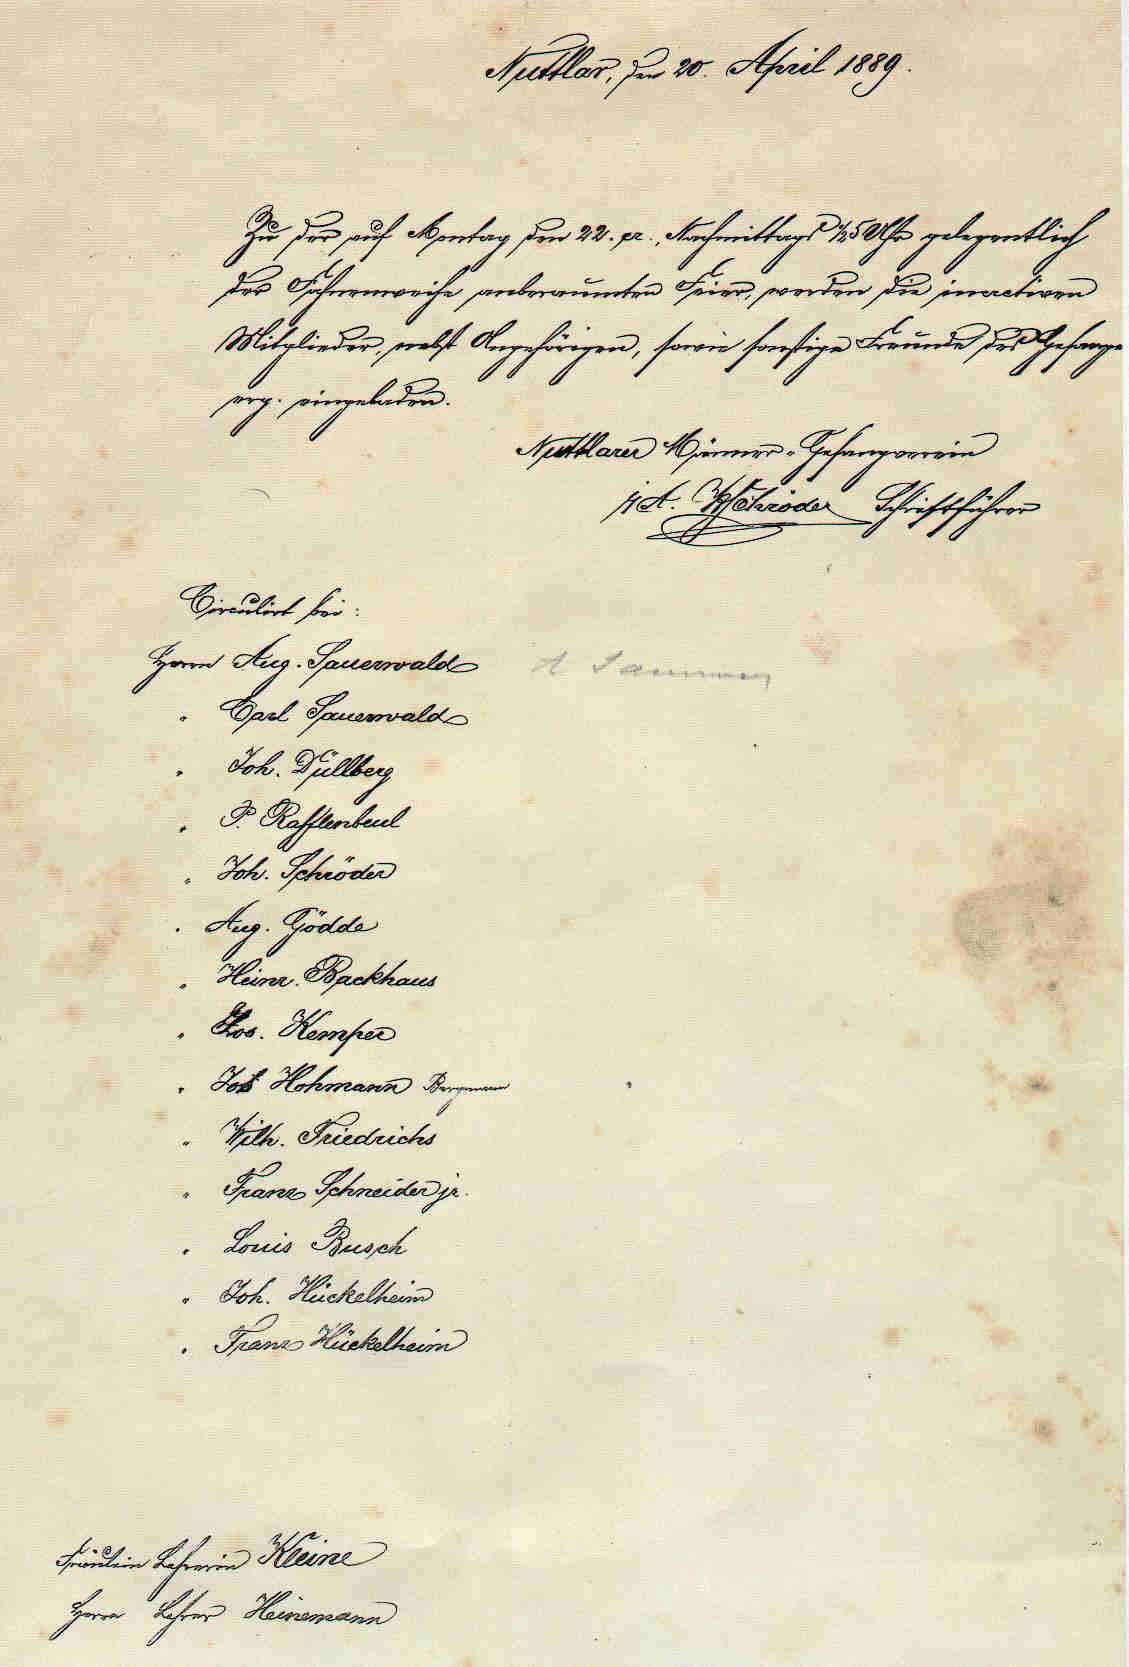 Nuttlar, den 20. April 1889.
Zu der auf Montag den 22. cr., Nachmittags ½5 Uhr gelegentlich
der Fahnenweihe anberaumten Feier, werden die inactiven
Mitglieder, nebst Angehörigen, sowie sonstige Freunde des Gesanges
erg. eingeladen.
Nuttlarer Männer-Gesangverein
i/A. Schröder Schriftführer
Circulirt bei:
Herrn Aug. Sauerwald
" Carl Sauerwald
" Joh. Düllberg
" P. Rafflenbeul
" Joh. Schröder
" Aug. Gödde
" Heinr. Backhaus
" Jos. Kemper
" Hohmann Bergmann
" Wilh. Friedrichs
" Franz Schneider jr.
" Louis Busch
" Joh. Hückelheim
" Franz Hückelheim
Fräulein Lehrerin Kleine
Herrn Lehrer Heinemann